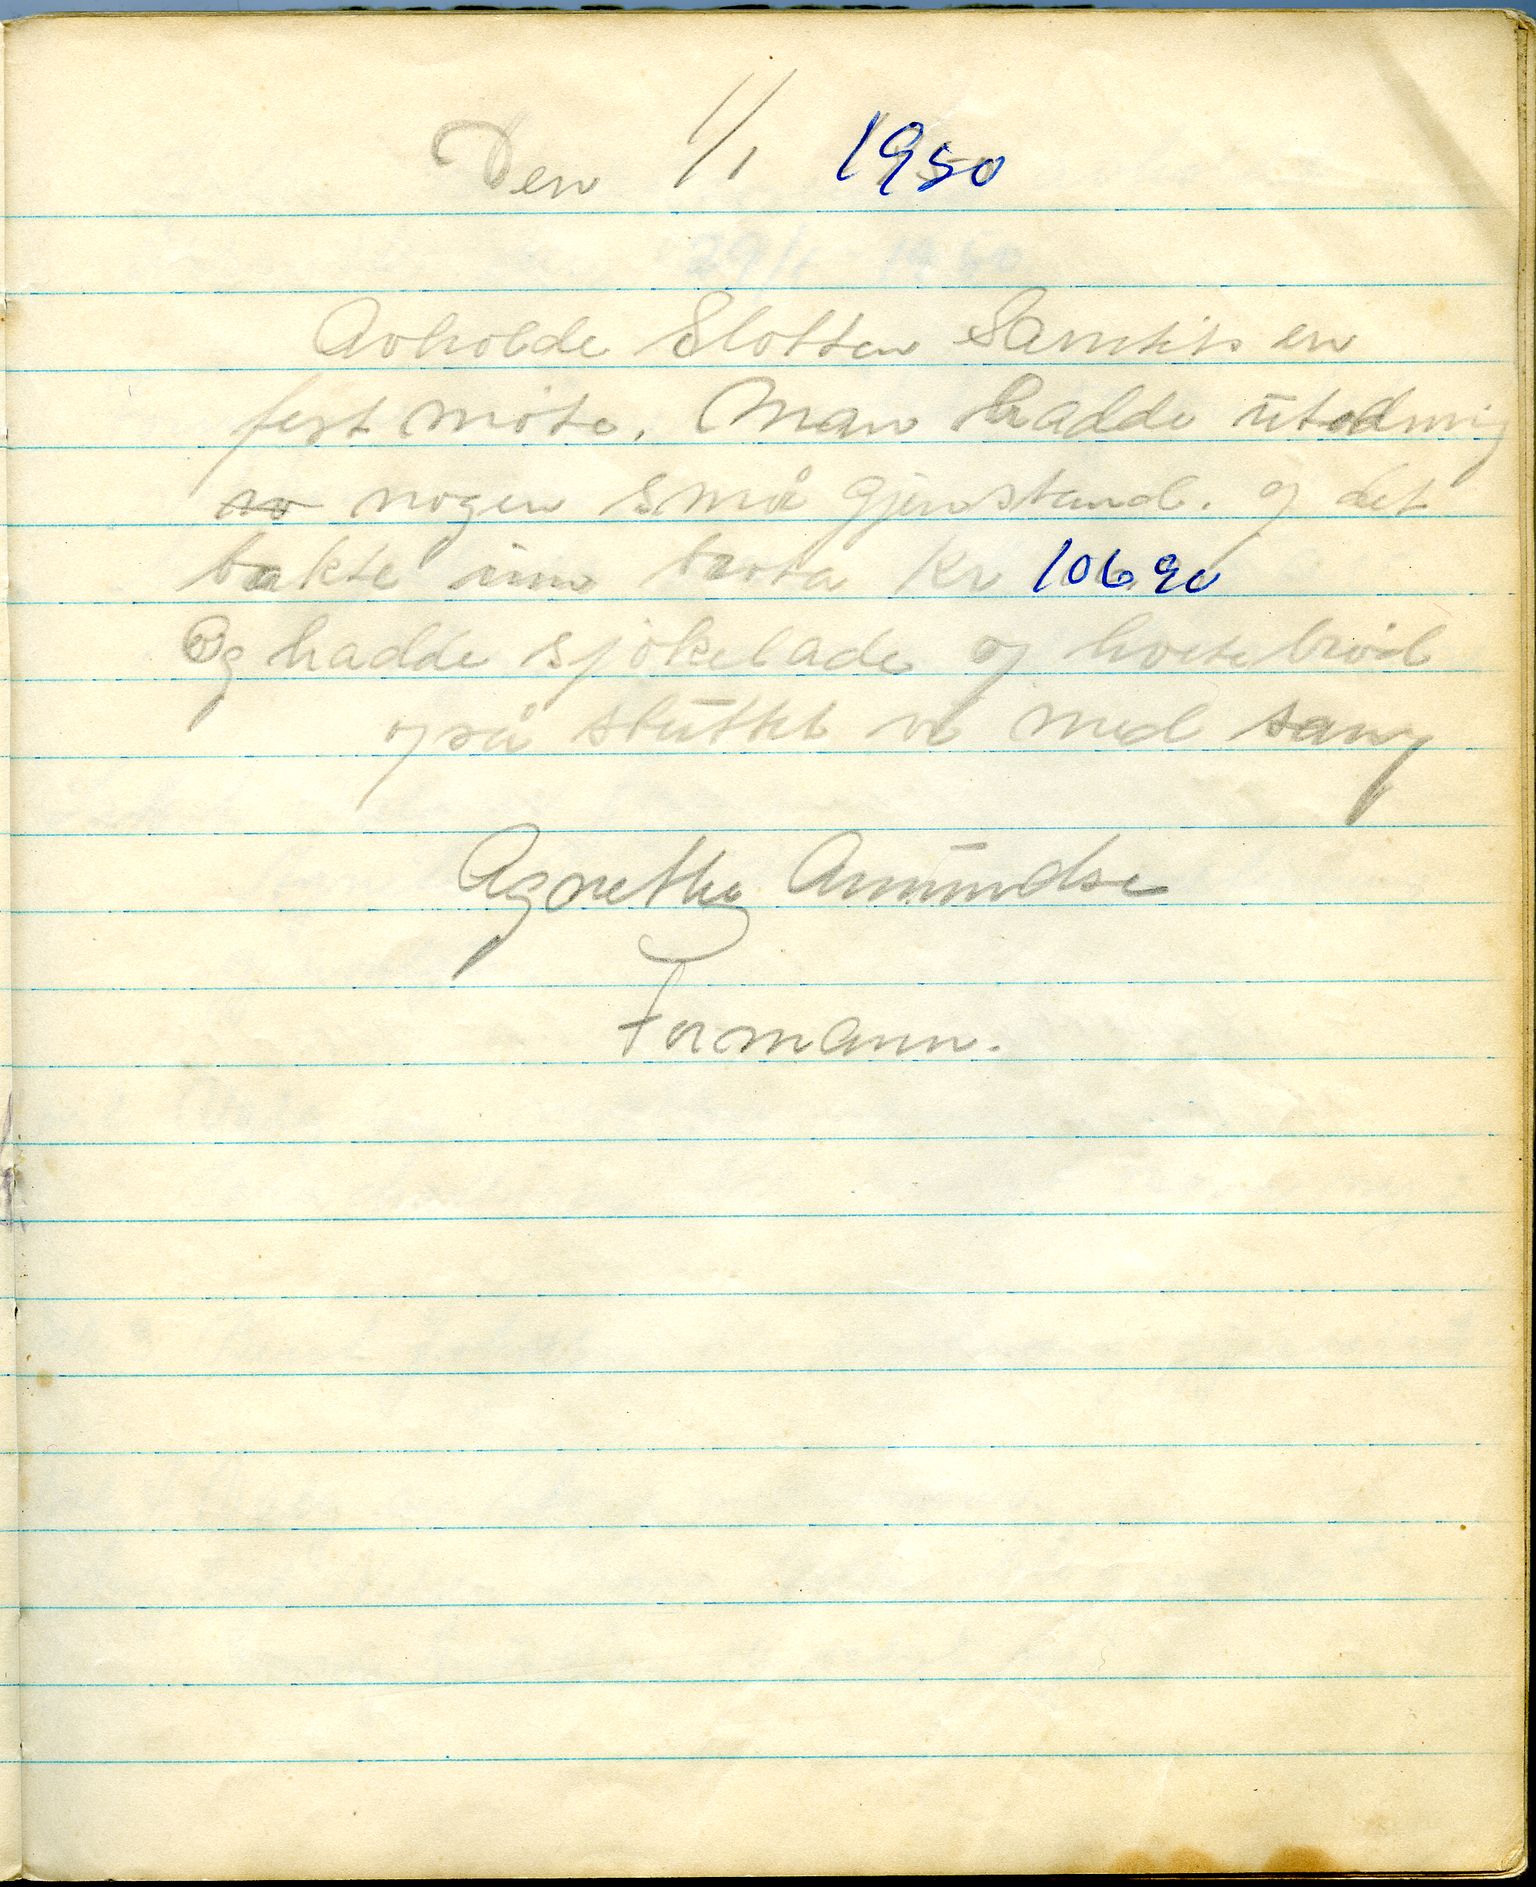 Den 1/1 1950
Avholde Slotten Samtits en
fest møte. Man hadde utlodning
nogen små gjenstand. og det
bakte inn brota Kr 106 90
Og hadde sjokelade og hvetebrød
også sluttet vi med sang
Agnethe Amundse
Formann.